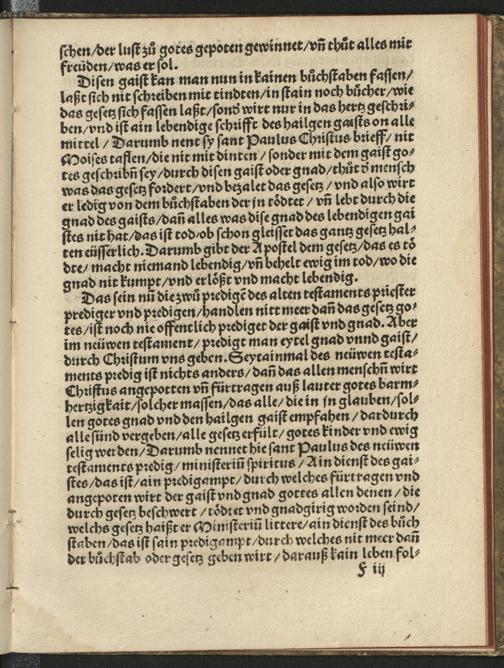 schen/der lust zů gotes gepoten gewinnet/vn̄ thůt alles mit
freüden/was er sol.
Disen gaist kan man nun in kainen bůchstaben fassen/
laßt sich nit schreiben mit tindten/in stain noch bücher/wie
das gesetz sich fassen laßt/sond̕ wirt nur in das hertz geschri⸗
ben/vnd ist ain lebendige schrifft des hailgen gaists on alle
mittel/Darumb nent sy sant Paulus Christus brieff/nit
Moises taflen/die nit mit dinten/sonder mit dem gaist go⸗
tes geschribn̄ sey/durch disen gaist oder gnad/thůt d̕ mensch
was das gesetz fordert/vnd bezalet das gesetz/vnd also wirt
er ledig von dem bůchstaben der in tödtet/vn̄ lebt durch die
gnad des gaists/dan̄ alles was dise gnad des lebendigen gai
stes nit hat/das ist tod/ob schon gleisset das gantz gesetz hal⸗
ten eüsserlich. Darumb gibt der Apostel dem gesetz/das es tö
dte/macht niemand lebendig/vn̄ behelt ewig im tod/wo die
gnad nit kumpt/vnd erlößt vnd macht lebendig.
Das sein nu̅ die zwů predigē des alten testaments priester
prediger vnd predigen/handlen nitt meer dan̄ das gesetz go⸗
tes/ist noch nie offentlich prediget der gaist vnd gnad. Aber
im neüwen testament/predigt man eytel gnad vnnd gaist/
durch Christum vns geben. Seytainmal des neüwen testa⸗
ments predig ist nichts anders/dan̄ das allen menschn̄ wirt
Christus angepotten vn̄ fürtragen auß lauter gotes barm⸗
hertzigkait/solcher massen/das alle/die in jn glauben/sol⸗
len gotes gnad vnd den hailgen gaist empfahen/dardurch
alle sünd vergeben/alle gesetz erfült/gotes kinder vnd ewig
selig werden/Darumb nennet hie sant Paulus des neüwen
testaments predig/ministeriū spiritus/Ain dienst des gai⸗
stes/das ist/ain predigampt/durch welches fürtragen vnd
angepoten wirt der gaist vnd gnad gottes allen denen/die
durch gesetz beschwert/tödtet vnd gnadgirig worden seind/
welchs gesetz haißt er Ministeriū littere/ain dienst des bůch
staben/das ist sain predigampt/durch welches nit meer dan̄
der bůchstab oder gesetz geben wirt/darauß kain leben fol⸗
F iij